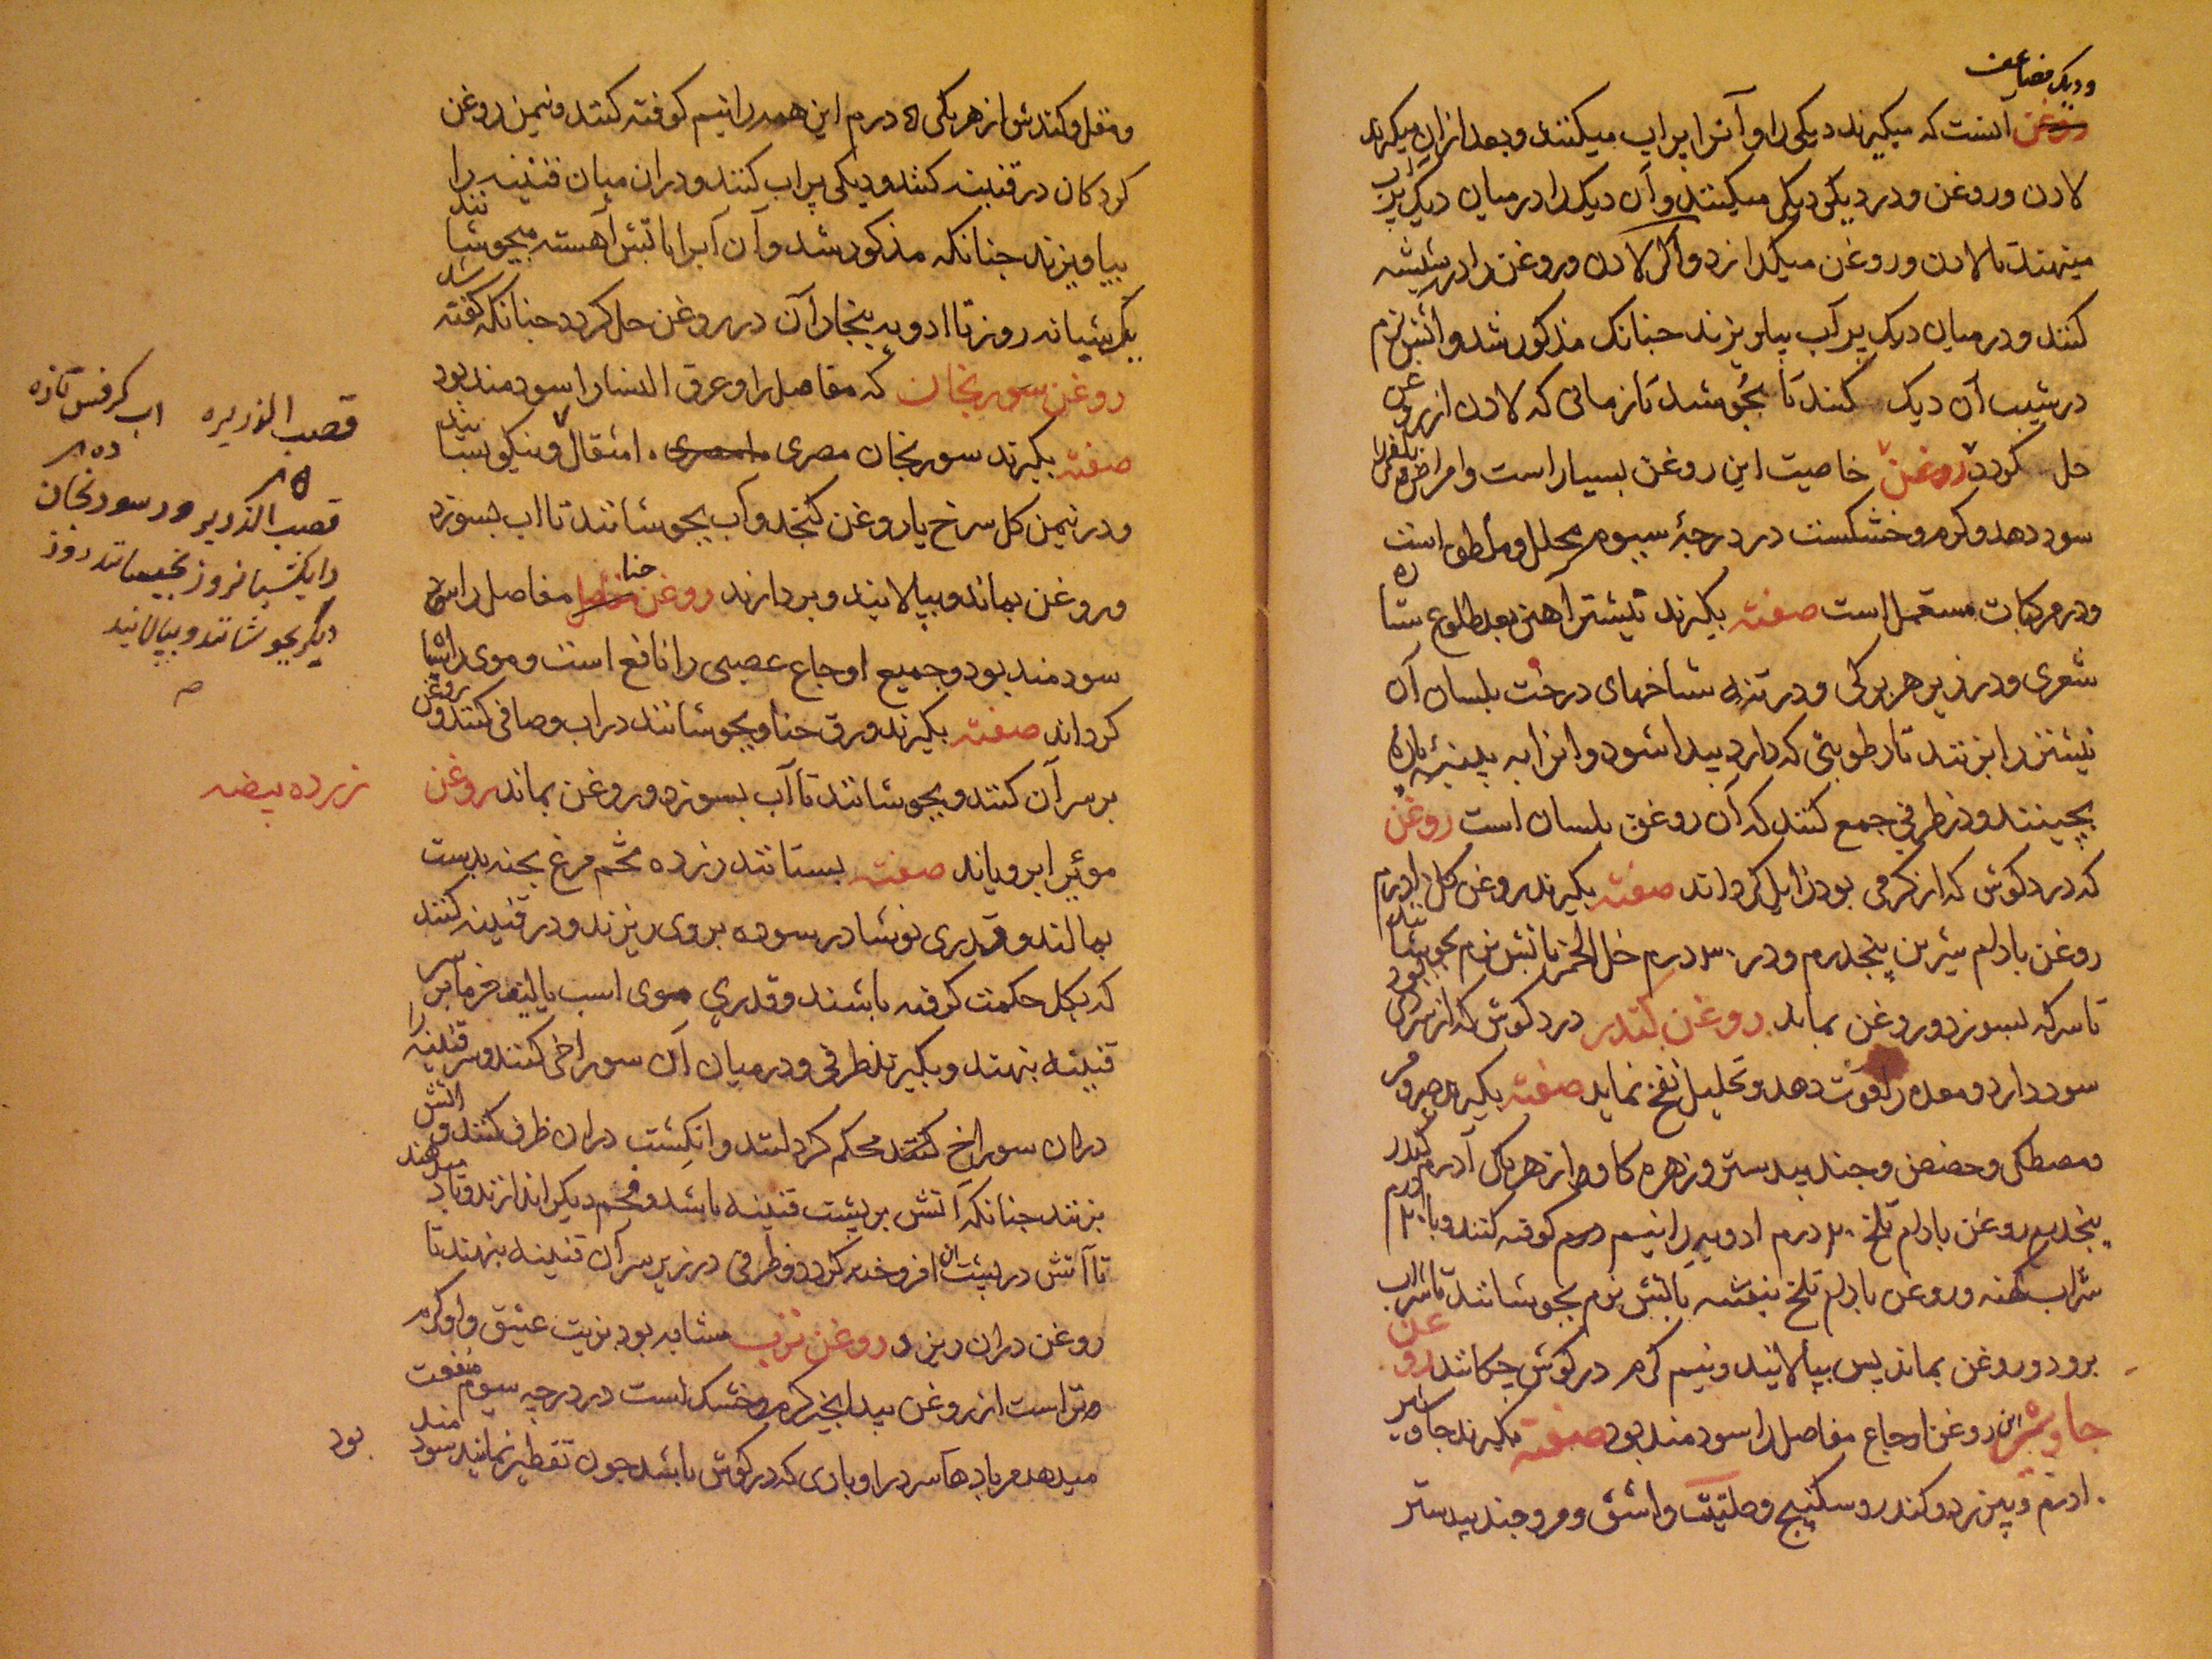 و دیک مضاعف
روغن آنست که میکیرند دیکی را و آنرا پر اب میکنند و بعد از ان میکیرند
لادن و روغن و در دیکی دیکر میکنند و آن دیک را در میان دیک پر اب
مینهند تا لادن و روغن میکدازد و اکر لادن و روغن را در شیشه
کنند و در میان دیک پر آب بیاویزند جنانک مذکور شد و آتش نرم
در شیب آن دیک کنند تا بجوشد تا زمانی که لادن از روغن
حل کردد روغن خاصیت این روغن بسیار است و امراض بلغمی را
سود دهد و کرم و خشکست در درجۀ سیوم محلل و ملطف است
و در مرکبات مستعمل است صفته بکیرند نیشتر آهن بعد طلوع ستاره
شعری و در زیر هر برکی و در تنه شاخهای درخت بلسان آن
نیشتر را بزنند تا رطوبتی که دارد پیدا شود و انرا به پنبه پاره
بچینند و در ظرفی جمع کنند که آن روغن بلسان است روغن
که درد کوش که از کرمی بود زایل کرداند صفته بکیرند روغن کل ادرم
روغن بادام شیرین پنجدرم و در ۳۰ درم خل الخمر باتش نرم بجوشانند
تا سرکه بسوزد و روغن بماند روغن کندر درد کوش که از سردی بود
سود دارد و معده را قوت دهد و تحلیل نفخ نماید صفته بکیرند صبر و مر
و مصطکی و حضض و جندبیدستر و زهره کاو از هر یک ادرم کندر
پنجدرم روغن بادام تلخ ۲۰ درم ادویه را نیم کوفته کنند و با ۲۰ درم
شراب کهنه و روغن بادام تلخ بنفشه باتش نرم بجوشانند تا شراب
برود و روغن بماند پس بپالایند و نیم کرم در کوش چکانند روغن
جاوشیر این روغن اوجاع مفاصل را سودمند بود صفته بکیرند جاوشیر
ادرم و پیزرد و کندر و سکنبیج و حلتیت و اشق و مر و جندبیدستر
و مقل و کندش از هر یکی ۵ درم این همه را نیم کوفته کنند و نیمن روغن
کردکان در قنینه کنند و دیکی پر اب کنند و در ان میان قنینه را
بیاویزند جنانکه مذکور شد و آن آبرا باتش آهسته میجوشانند
یک شبانه روز تا ادویه ببخار آن در روغن حل کردد جنانکه کفته شد
روغن سورنجان که مفاصل را و عرق النسا را سودمند بود
صفته بکیرند سورنجان مصری امثقال و نیکو بسایند
و در نیمن کل سرخ یا روغن کنجد و آب بجوشانند تا اب بسوزد
و روغن بماند و بپالایند و بردارند روغن حنا مفاصل را
سودمند بود و جمیع اوجاع عصبی را نافع است و موی را سیاه
کرداند صفته بکیرند ورق حنا و بجوشانند در اب و صافی کنند و روغن
بر سر آن کنند و بجوشانند تا آب بسوزد و روغن بماند روغن
زرده بیضه
مویرا برویاند صفته بستانند زرده تخم مرغ پخته بدست
بمالند و قدری نوشادر سوده بروی ریزند و در قنینه کنند
که بکل حکمت کرفته باشند و قدری موی اسب یا لیف خرما بر سر
قنینه نهند و بکیرند ظرفی و در میان آن سوراخی کنند و سر قنینه را
در ان سوراخ کنند محکم کردانند و انکشت در ان ظرف کنند و آتش
بزنند جنانکه آتش بر پشت قنینه باشد و فحم دیکر اندازند و باد میدهند
تا آتش در پشت آن افروخته کردد و ظرفی در زیر سر آن قنینه نهند تا
روغن دران ریزد روغن ترب مشابه بود بزیت عتیق و او کرم
تر است از روغن بیدانجیر کرم و خشک است در درجه سیوم منفعت
میدهد مر بادهآ سرد را و بادی که در کوش باشد جون تقطیر نمایند سودمند بود
قصب الذریره اب کرفس تازه
قصب الذریره و سورنجان
را یکشبانروز بخیسانند روز
دیکر بجوشانند و بپالایند